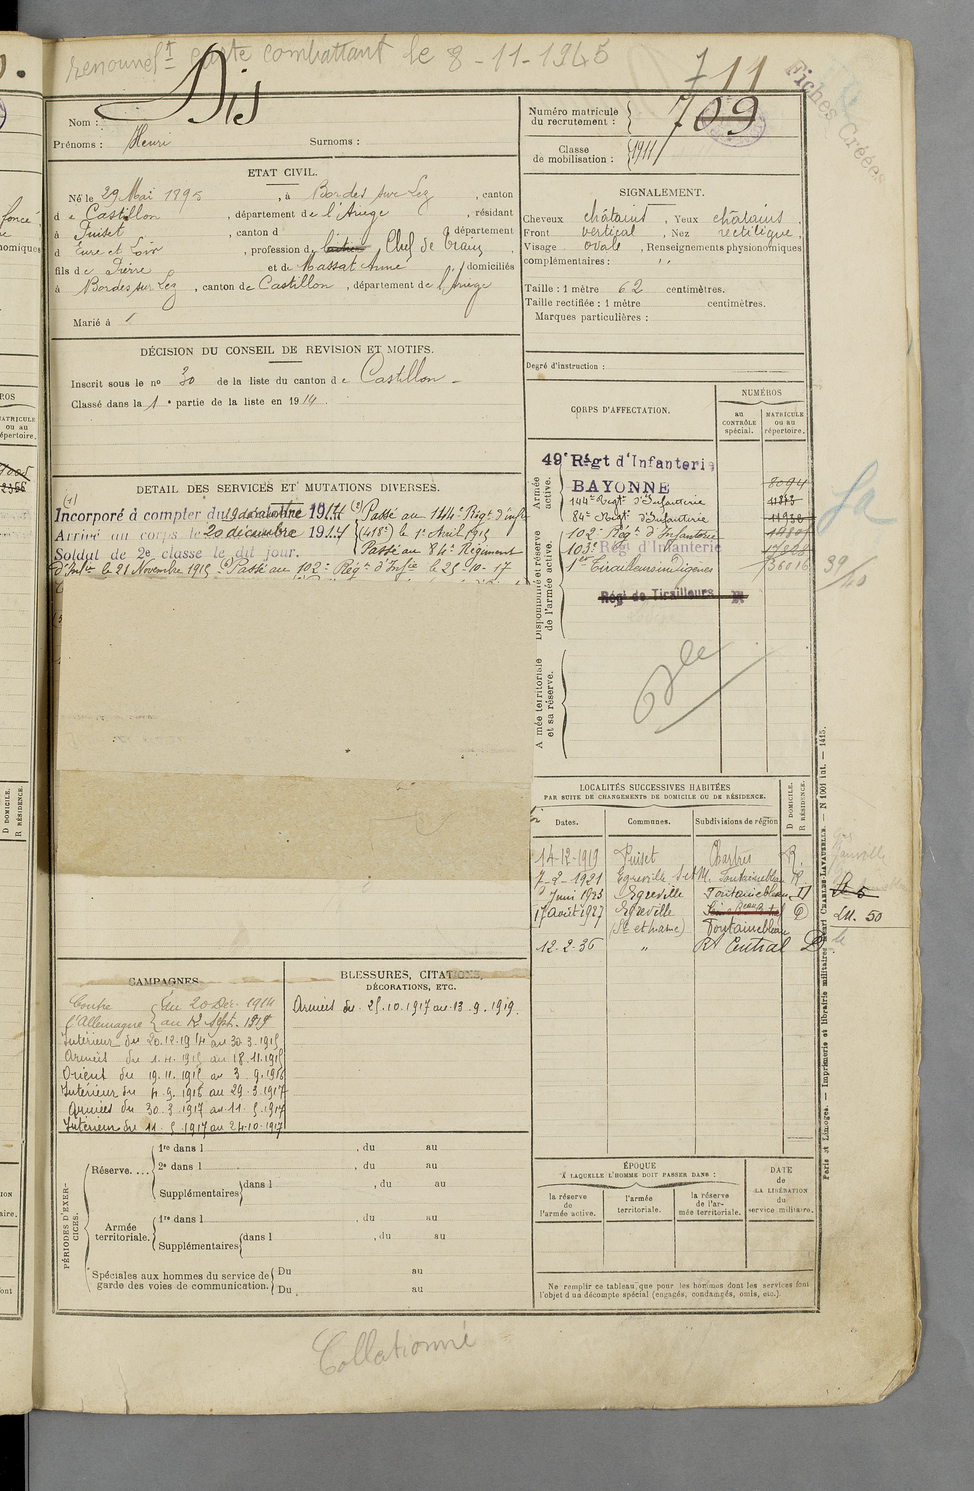 renouvelt carte combattant le 8-11-1945
711
Fiches Créées
Nom : Dis
Prénoms : Henri Surnoms :
Numéro matricule du recrutement : 709
Classe de mobilisation : 1911
ETAT CIVIL.
Né le 29 Mai 1895, à Bordes sur Lez, canton
de Castillon, département de l'Ariège, résidant
à Puiset, canton d , département
d Eure et Loir, profession de Chef de train,
fils de Pierre et de Massat Anne, domiciliés
à Bordes sur Lez, canton de Castillon, département de l'Ariège
Marié à
SIGNALEMENT.
Cheveux châtains, Yeux châtains,
Front vertical, Nez rectiligne,
Visage ovale, Renseignements physionomiques
complémentaires : "
Taille : 1 mètre 62 centimètres.
Taille rectifiée : 1 mètre centimètres.
Marques particulières :
Degré d'instruction :
DÉCISION DU CONSEIL DE REVISION ET MOTIFS.
Inscrit sous le no 30 de la liste du canton de Castillon
Classé dans la 1e partie de la liste en 1914
CORPS D'AFFECTATION.
NUMÉROS
au CONTRÔLE spécial.
MATRICULE ou au répertoire.
Armée active.
49e Régt d'Infanterie
BAYONNE 8094
144e Régt d'Infanterie
84e Régt d'Infanterie 11938
102e Régt d'Infanterie
103e Régt d'Infanterie
1er Tirailleurs indigènes 36016
Régt de Tirailleurs
39/40
Disponibilité et réserve de l'armée active.
Armée territoriale et sa réserve.
DÉTAIL DES SERVICES ET MUTATIONS DIVERSES.
Incorporé à compter du 19 décembre 1914 (2) Passé au 144e Régt d'infie
Arrivé au corps le 20 décembre 1914 le 1er Avril 1915
Soldat de 2e classe le dit jour. Passé au 84e Régiment
d'Infie le 21 Novembre 1915 Passé au 102e Régt d'Infie le 25-10-17
LOCALITÉS SUCCESSIVES HABITÉES
PAR SUITE DE CHANGEMENTS DE DOMICILE OU DE RÉSIDENCE.
Dates. Communes. Subdivisions de région D DOMICILE. R RÉSIDENCE.
14-12-1919 Puiset Chartres R.
7-2-1921 Egreville S et M. Fontainebleau R.
Juin 1923 Egreville Fontainebleau D
17 Août 1927 Egreville D
(Se et Marne) Fontainebleau
12-2-36 " Rt Central D
LM. 50
CAMPAGNES.
Contre l'Allemagne du 20 Déc. 1914
au 12 Sept. 1919
Intérieur du 20.12.1914 au 30.3.1915
Armées du 1.4.1915 au 18.11.1915
Orient du 19.11.1915 au 3.9.1916
Intérieur du 4.9.1916 au 29.3.1917
Armées du 30.3.1917 au 11.5.1917
Intérieur du 11.5.1917 au 24.10.1917
BLESSURES, CITATIONS, DÉCORATIONS, ETC.
Armées du 25.10.1917 au 13.9.1919.
PÉRIODES D'EXERCICES.
Réserve....
1re dans l , du au
2e dans l , du au
Supplémentaires dans l , du au
Armée territoriale.
1re dans l , du au
Supplémentaires dans l , du au
Spéciales aux hommes du service de garde des voies de communication. Du au
Du au
ÉPOQUE
A LAQUELLE L'HOMME DOIT PASSER DANS :
la réserve de l'armée active.
l'armée territoriale.
la réserve de l'armée territoriale.
DATE de LA LIBÉRATION du service militaire.
Ne remplir ce tableau que pour les hommes dont les services font
l'objet d'un décompte spécial (engagés, condamnés, omis, etc.).
Paris et Limoges. — Imprimerie et librairie militaires Henri CHARLES-LAVAUZELLE. — N 1001 int. — 1415.
Collationné